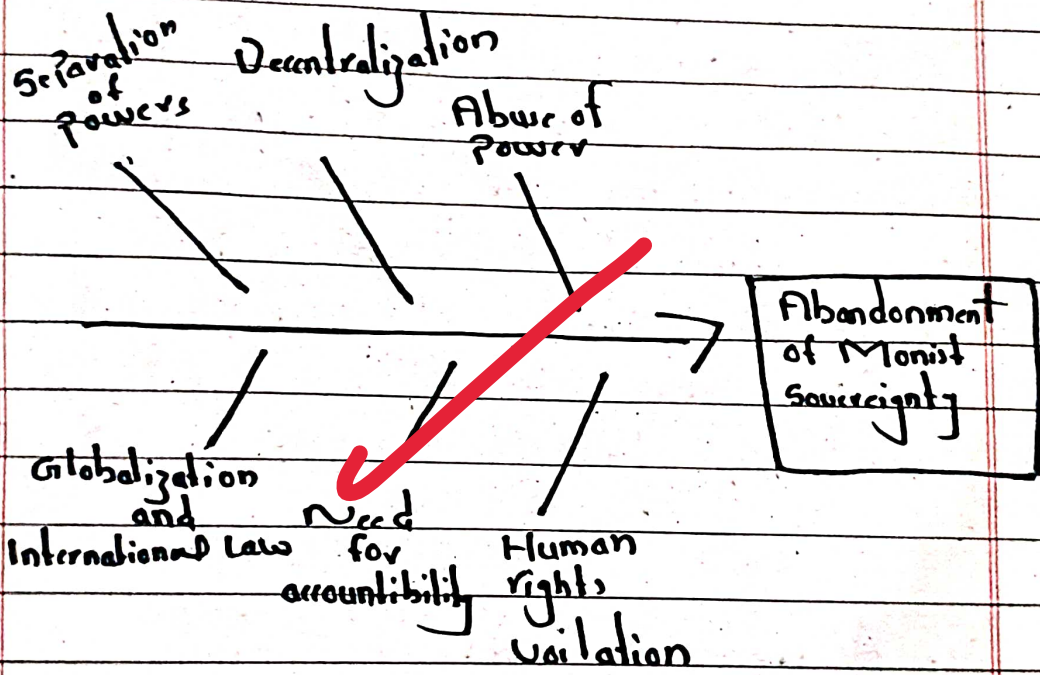 Separation
of
Powers
Decentralization
Abuse of
Power
Abandonment
of Monist
Sovereignty
Globalization
and
International Law
Need
for
accountibility
Human
rights
Voilation